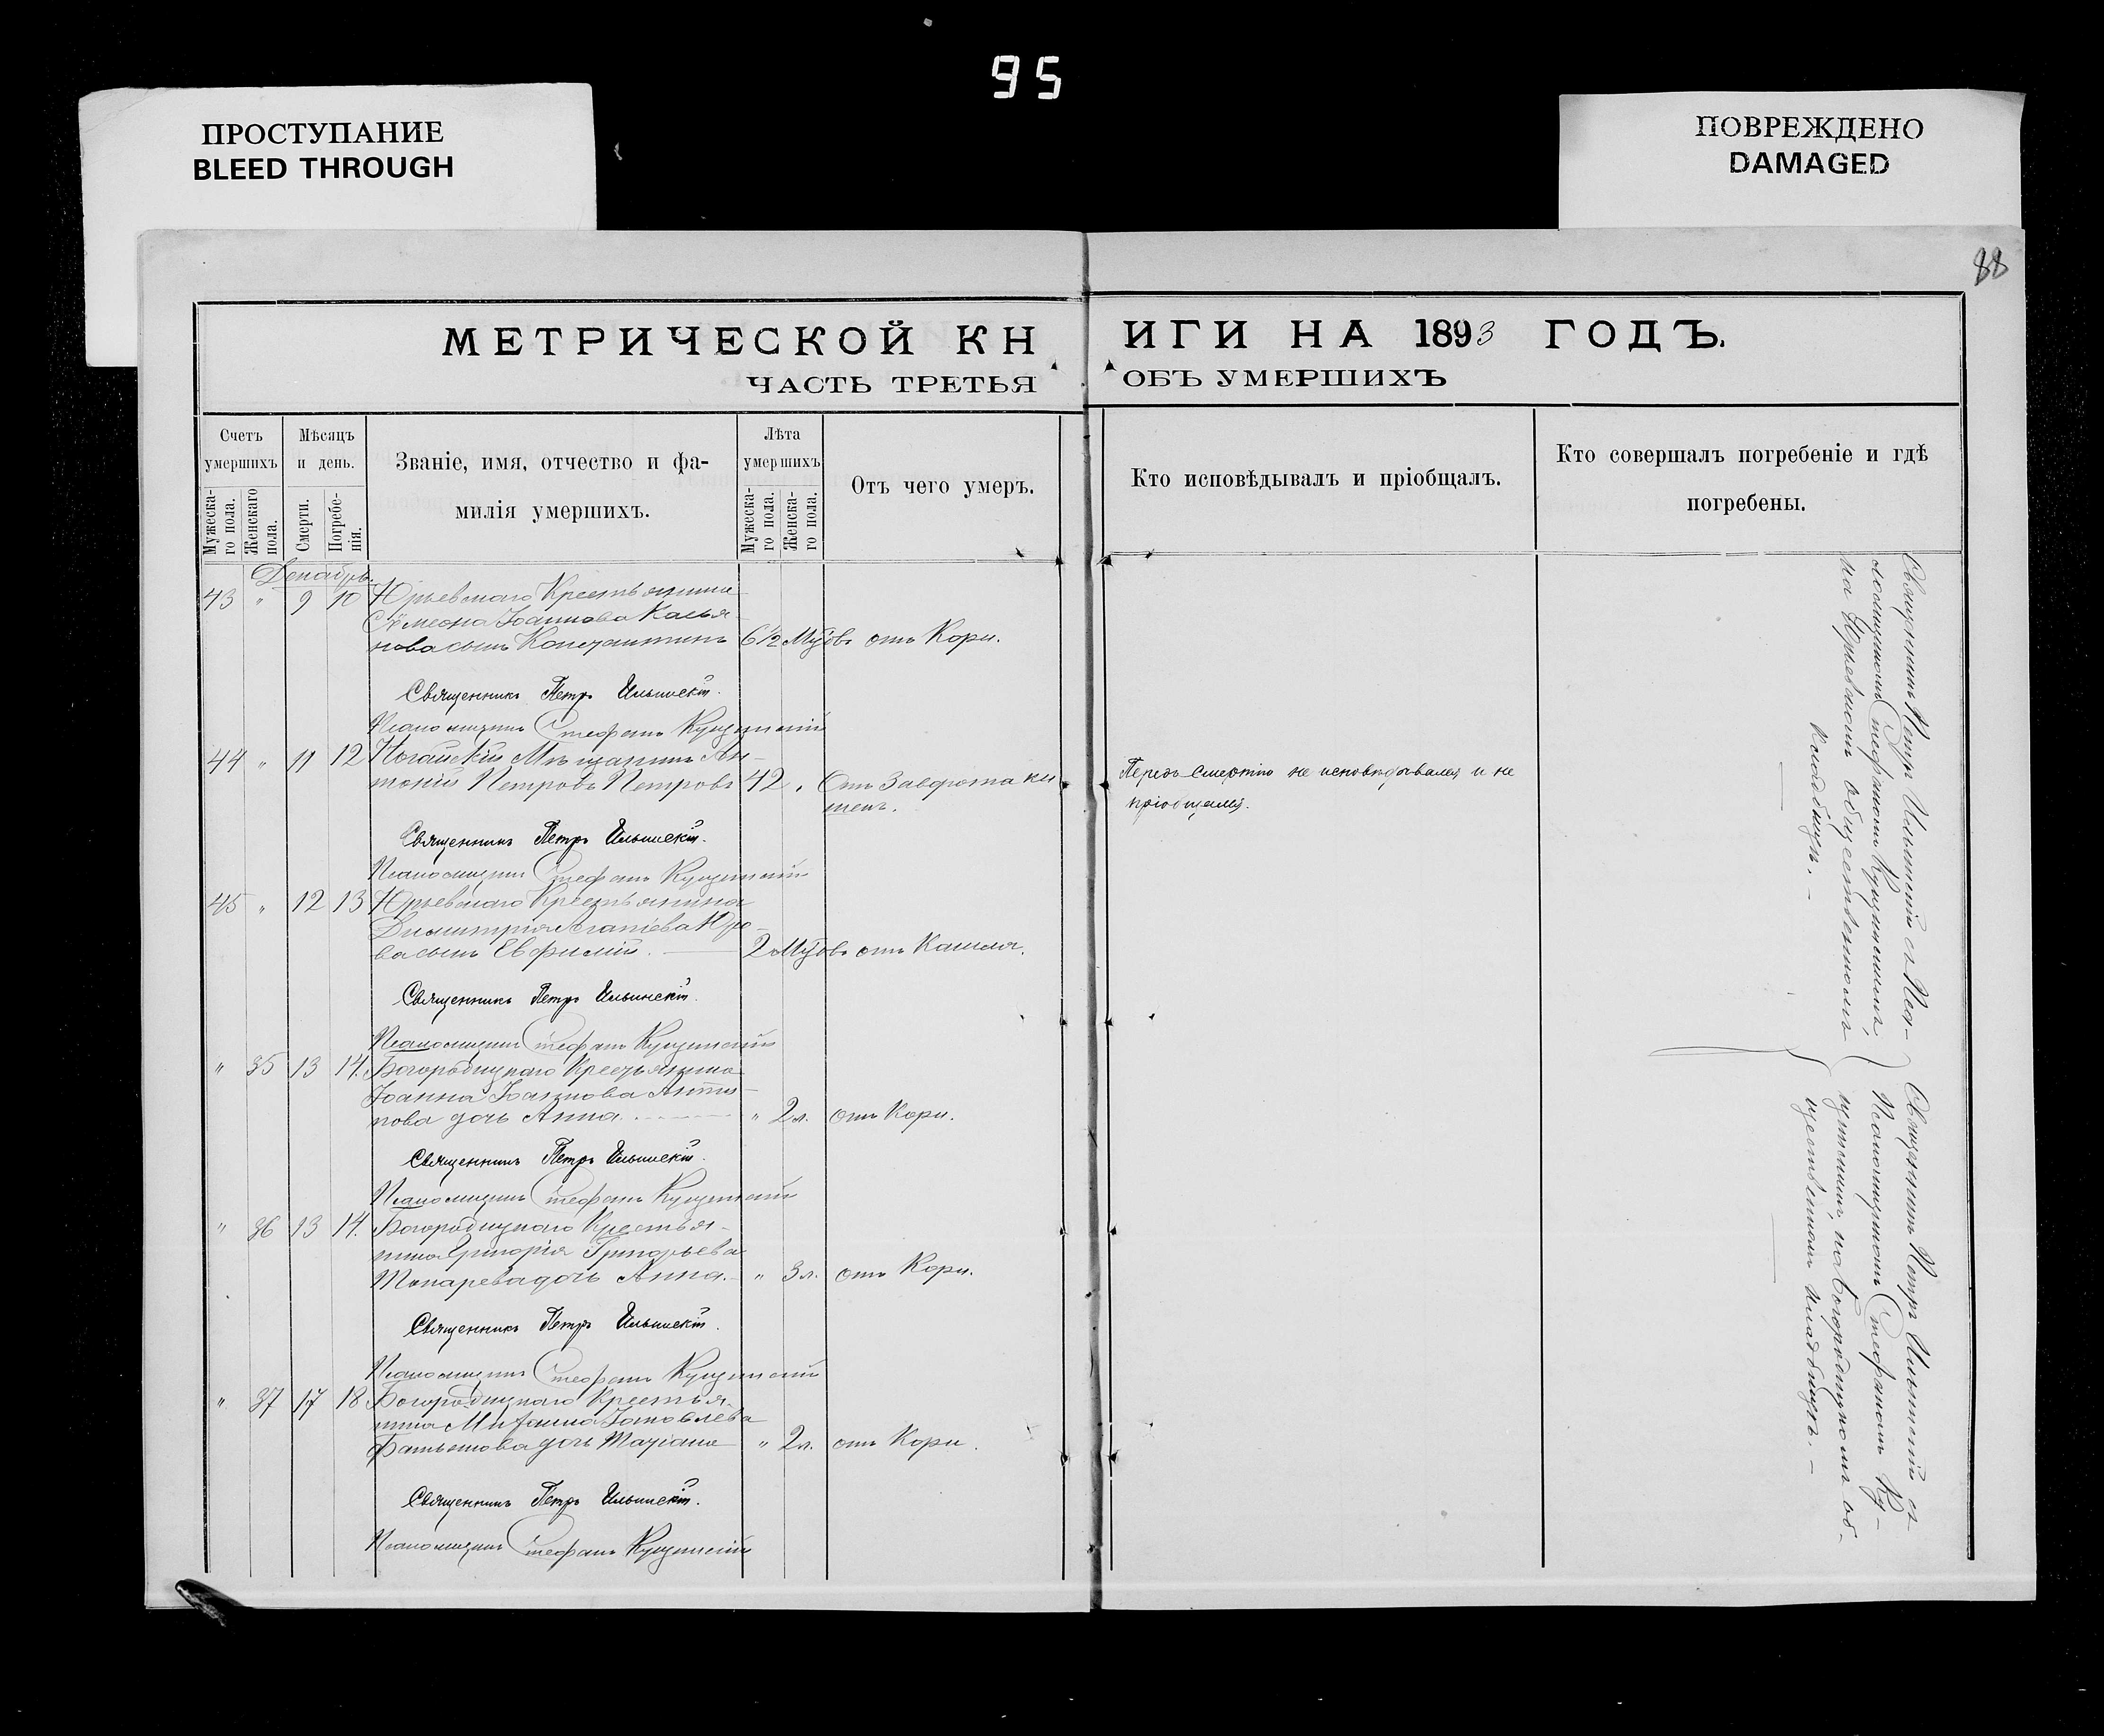 95
ПРОСТУПАНИЕ
BLEED THROUGH
ПОВРЕЖДЕНО
DAMAGED
88
МЕТРИЧЕСКОЙ КНИГИ НА 1893 ГОДЪ.
ЧАСТЬ ТРЕТЬЯ ОБЪ УМЕРШИХЪ
Счетъ умершихъ
Мужеска-го пола.
Женскаго пола.
Мѣсяцъ и день.
Смерти.
Погребе-нія.
Званіе, имя, отчество и фа-
милія умершихъ.
Лѣта умершихъ
Мужеска-го пола.
Женска-го пола.
Отъ чего умеръ.
Кто исповѣдывалъ и пріобщалъ.
Кто совершалъ погребеніе и гдѣ
погребены.
Декабрь.
43 " 9 10 Юрьевскаго Крестьянина
Симеона Іоаннова Касья
нова сынъ Константинъ 6½ М-цовъ отъ Кори.
Священникъ Петръ Ильинскій.
Псаломщикъ Стефанъ
44 " 11 12 Ногайскій Мѣщанинъ Ан-
тоній Петровъ Петровъ 42 " Отъ Заворота ки
шекъ.
Передъ Смертію не исповѣдывался и не
пріобщался.
Священникъ Петръ Ильинскій.
Псаломщикъ Стефанъ
45 " 12 13 Юрьевскаго Крестьянина
Димитрія
ва сынъ Евфимій. 2 М-цовъ отъ Кашля.
Священникъ Петръ Ильинскій.
Псаломщикъ Стефанъ
" 35 13 14. Богородицкаго Крестьянина
Іоанна Іоаннова Анти-
пова дочь Анна. " 2 л. отъ Кори.
Священникъ Петръ Ильинскій.
Псаломщикъ Стефанъ
" 36 13 14. Богородицкаго Крестья-
нина Григорія Григорьева
Токарева дочь Анна. " 3 л. отъ Кори.
Священникъ Петръ Ильинскій.
Псаломщикъ Стефанъ
" 37 17 18 Богородицкаго Крестья-
нина Михаила Іаковлева
дочь Татіана " 2 л. отъ Кори.
Священникъ Петръ Ильинскій.
Псаломщикъ Стефанъ
Священникъ Петръ Ильинскій съ Пса-
ломщикомъ Стефаномъ
на Юрьевскомъ общественномъ
кладбищѣ.
Священникъ Петръ Ильинскій съ
Псаломщикомъ Стефаномъ
на Богородицкомъ об-
щественномъ кладбищѣ.